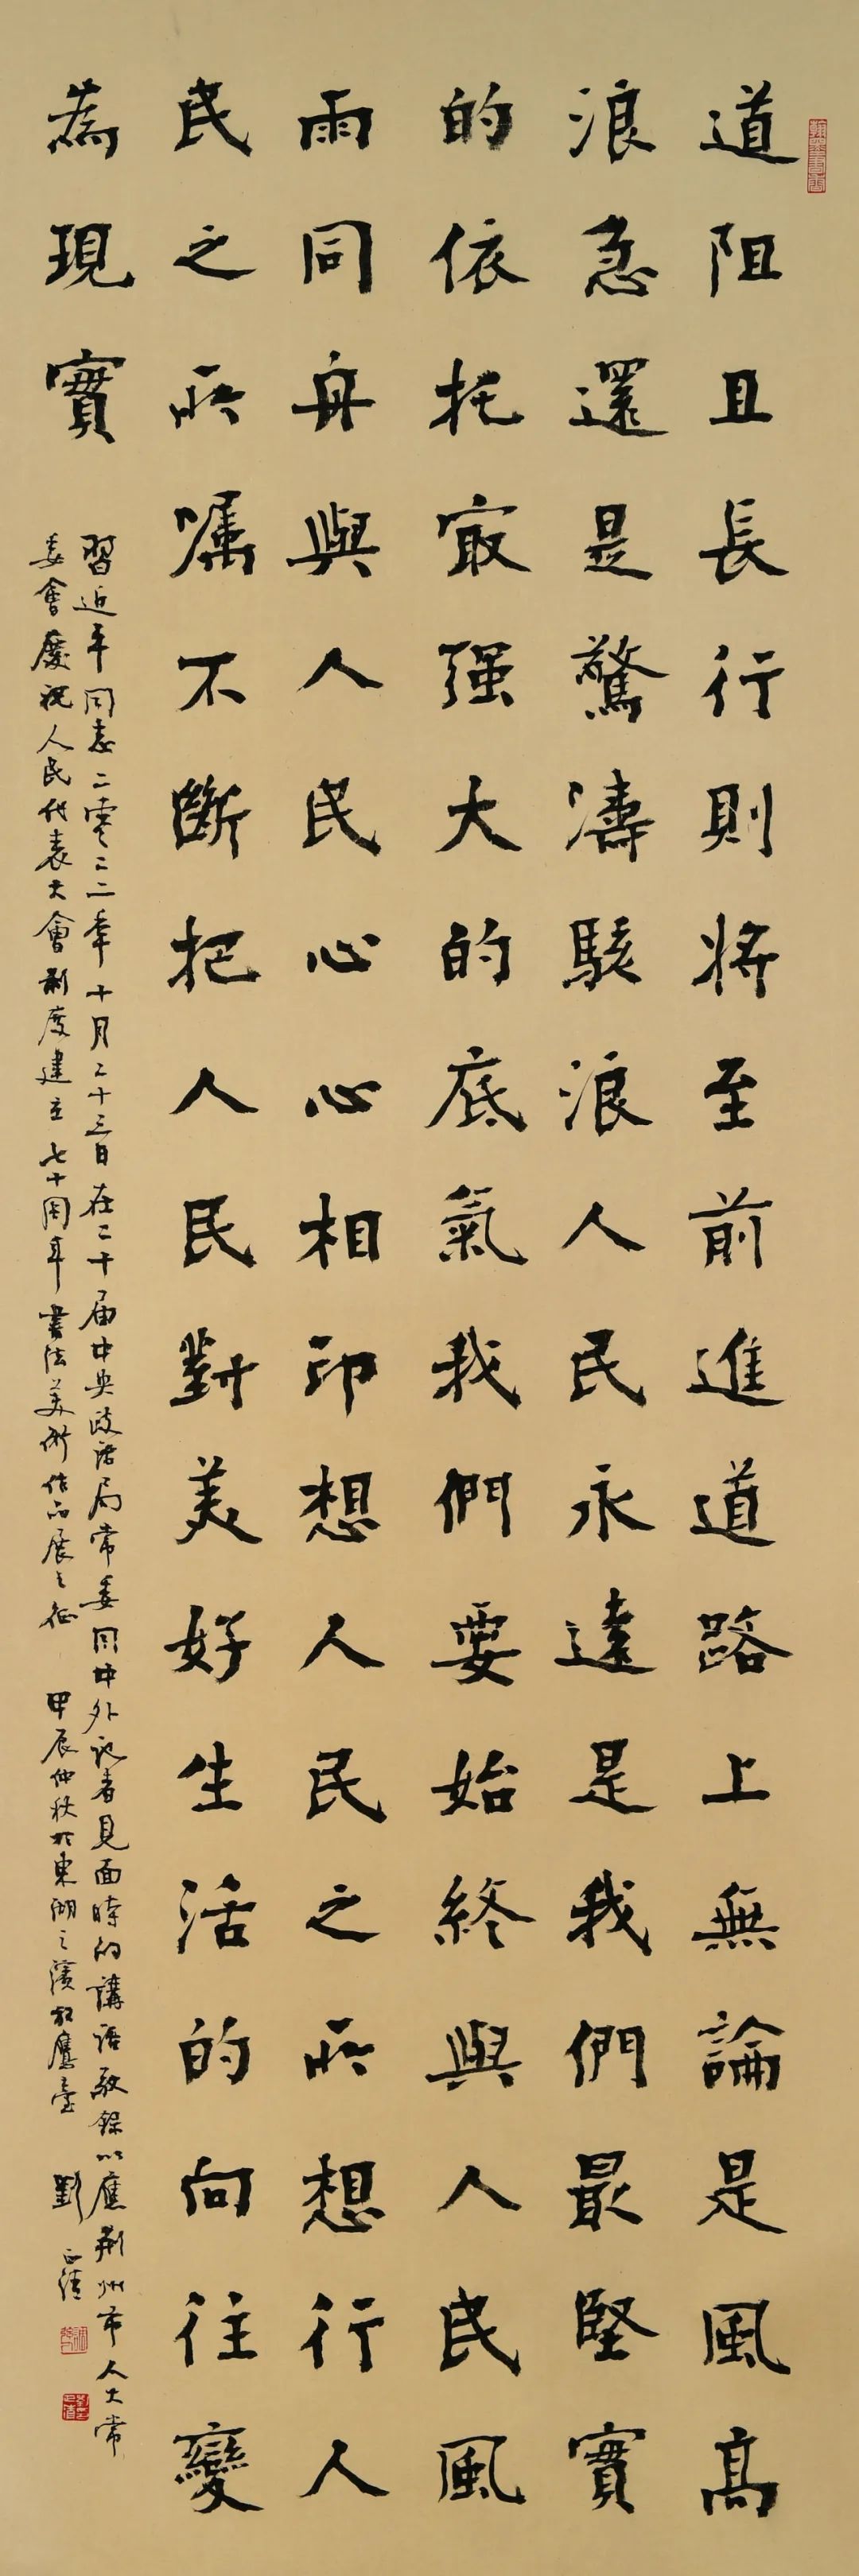 道阻且長行則將至前進道路上無論是風高
浪急還是驚濤駭浪人民永遠是我們最堅實
的依托冣强大的底氣我們要始終與人民風
雨同舟與人民心心相印想人民之所想行人
民之所嘱不斷把人民對美好生活的向往變
為現實
習近平同志二零二二年十月二十三日在二十届中央政治局常委同中外記者見面時的講話敬録以應荆州市人大常
委會慶祝人民代表大會制度建立七十周年書法美術作品展之征 甲辰仲秋於東湖之濱放鷹臺 劉